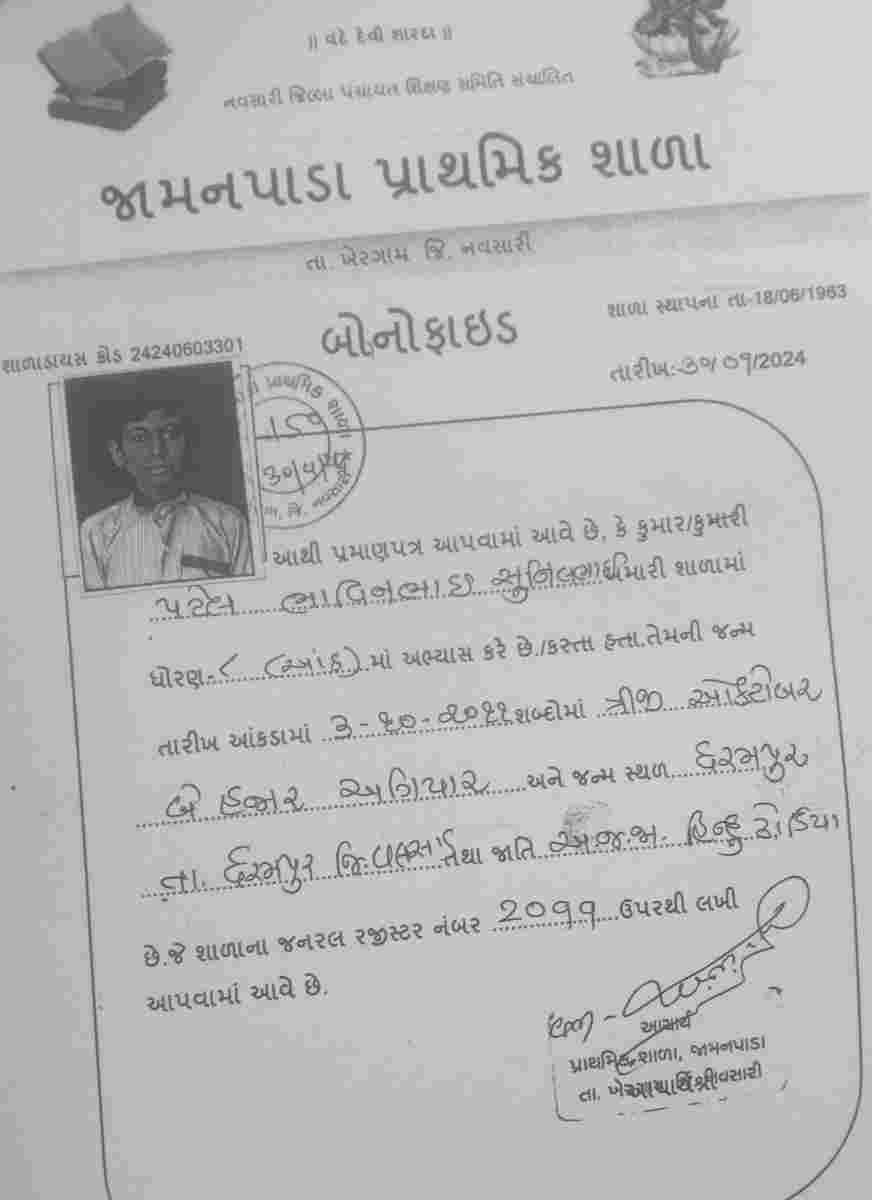 ॥ વંદે દેવી શારદા ॥
નવસારી જિલ્લા પંચાયત શિક્ષણ સમિતિ સંચાલિત
જામનપાડા પ્રાથમિક શાળા
તા. ખેરગામ જિ. નવસારી
શાળા સ્થાપના તા-18/06/1963
શાળાડાયસ કોડ 24240603301
બોનોફાઇડ
તારીખ:-૩૦/૦૧/2024
પ્રાથમિક શાળા
જિ. નવસારી
આથી પ્રમાણપત્ર આપવામાં આવે છે, કે કુમાર/કુમારી
પટેલ ભાવિનભાઇ સુનિલભાઇ મારી શાળામાં
ધોરણ-૮ (આઠ) માં અભ્યાસ કરે છે./કરતા હતા.તેમની જન્મ
તારીખ આંકડામાં ૩-૧૦-૨૦૧૧ શબ્દોમાં ત્રીજી ઓક્ટોબર
બે હજાર અગિયાર અને જન્મ સ્થળ ધરમપુર
તા. ધરમપુર જિ.વલસાડ તથા જાતિ અ.જ.જા. હિન્દુ ઢોડિયા
છે.જે શાળાના જનરલ રજીસ્ટર નંબર 2099 ઉપરથી લખી
આપવામાં આવે છે.
આચાર્ય
પ્રાથમિક શાળા, જામનપાડા
આચાર્યશ્રી